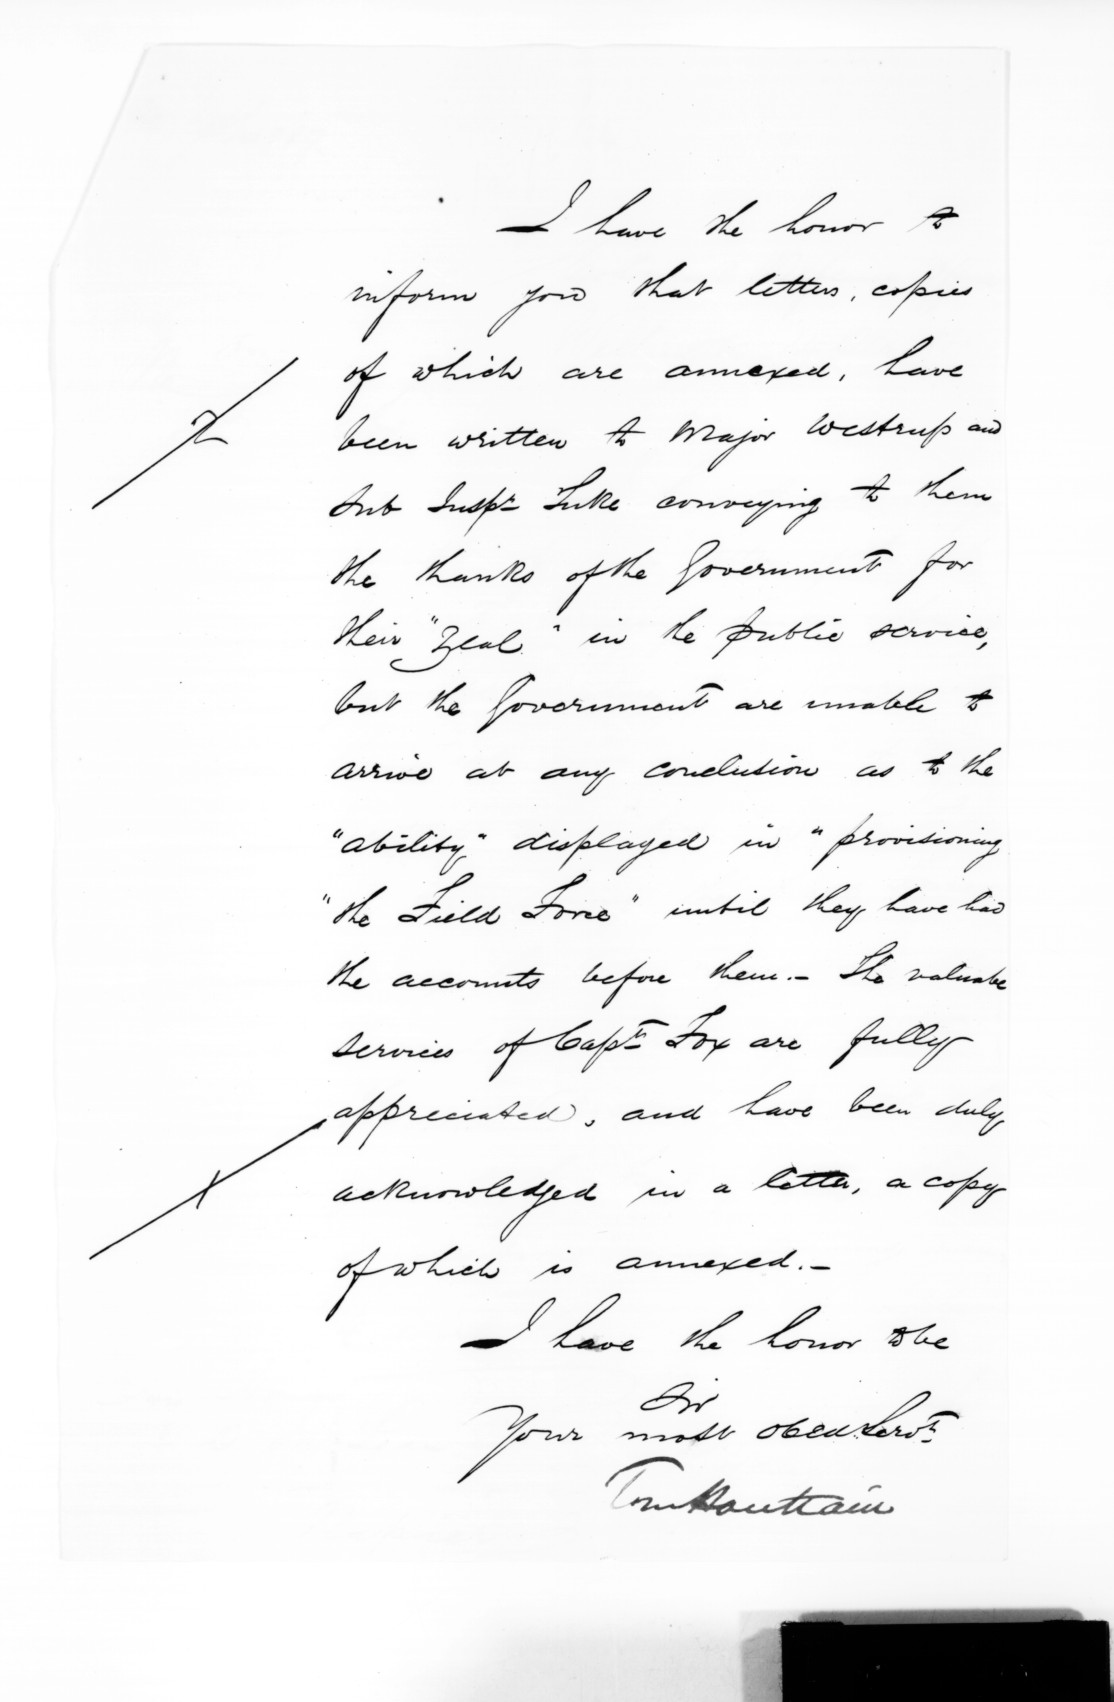 I have the honor to
inform you that letters, copies
of which are annexed, have
been written to Major Westrup and
Sub Inspr Tuke conveying to them
the thanks of the Government for
their "Zeal" in the public service,
but the Government are unable to
arrive at any conclusion as to the
"ability" displayed in "provisioning
"the Field Force" until they have had
the accounts before them. – The valuable
services of Captn Fox are fully
appreciated, and have been duly
acknowledged in a letter, a copy
of which is annexed. –
I have the honor to be
Sir
Your most obedt Servt